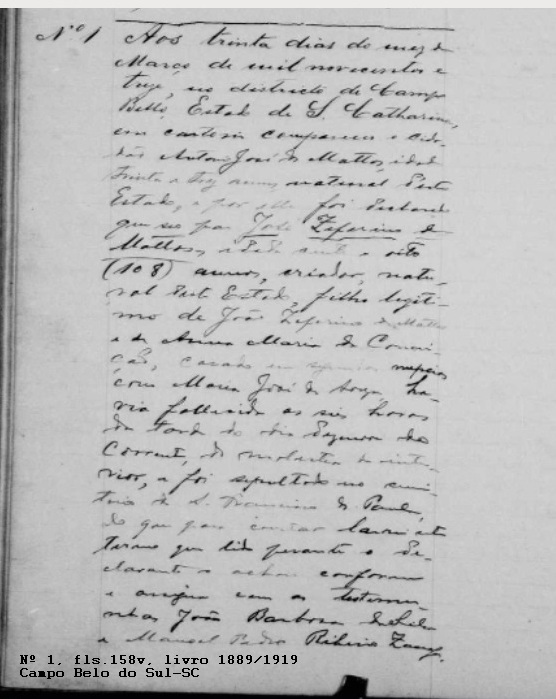 Nº 1 Aos trinta dias do mez de
Março de mil novecentos e
treze, no districto de Campo
Bello, Estado de S. Catharina,
em cartorio compareceu o cida-
dão Antonio José de Mattos, idade
trinta e tres annos, natural deste
Estado, e por elle foi declarado
que seu pae José Zeferino de
Mattos, idade cento e oito
(108) annos, criador, natu-
ral deste Estado, filho legiti-
mo de João Zeferino de Mattos
e de Anna Maria da Concei-
ção, casado em segundas nupcias
com Maria José de ha-
via fallecido as seis horas
da tarde do dia do
Corrente, de molestia de inte-
rior, e foi sepultado no cemi-
terio de S. Francisco de Paula,
do que para constar lavrei este
termo que lido perante o de-
clarante o achou conforme
e assigna com as testemu-
nhas João Barbosa da Silva
e Manoel Pedro Ribeiro
Nº 1, fls.158v, livro 1889/1919
Campo Belo do Sul-SC